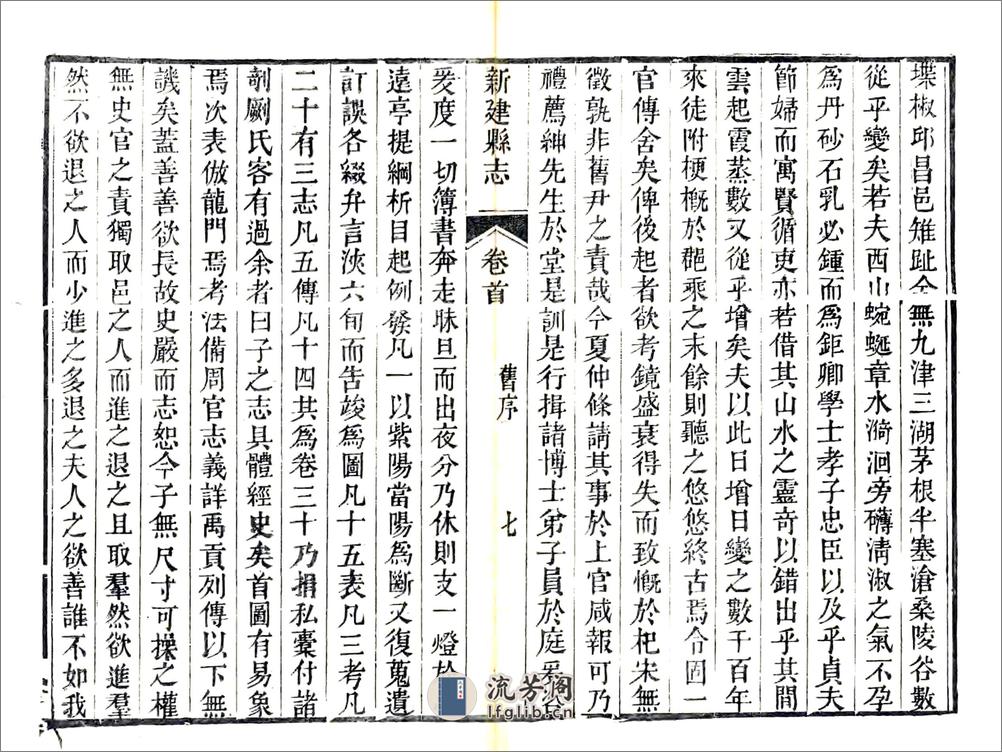 堞椒邱昌邑雉趾全無九津三湖茅根半塞滄桑陵谷數
從乎變矣若夫西山蜿蜒章水漪洄旁礴淸淑之氣不孕
爲丹砂石乳必鍾而爲鉅卿學士孝子忠臣以及乎貞夫
節婦而寓賢循吏亦若借其山水之靈奇以錯出乎其間
雲起霞蒸數又從乎增矣夫以此日增日變之數千百年
來徒附梗槪於郡乘之末餘則聽之悠悠終古焉令固一
官傳舍矣俾後起者欲考鏡盛衰得失而致慨於杞宋無
徵孰非舊尹之責哉今夏仲條請其事於上官咸報可乃
禮薦紳先生於堂是訓是行揖諸博士弟子員於庭爰
新建縣志
卷首
舊序
七
爰度一切簿書奔走昧旦而出夜分乃休則支一燈於
遠亭提綱析目起例發凡一以紫陽當陽爲斷又復蒐遺
訂誤各綴弁言浹六旬而告竣爲圖凡十五表凡三考凡
二十有三志凡五傳凡十四其爲卷三十乃捐私橐付諸
剞劂氏客有過余者曰子之志具體經史矣首圖有易象
焉次表倣龍門焉考法備周官志義詳禹貢列傳以下無
譏矣蓋善善欲長故史嚴而志恕今子無尺寸可操之權
無史官之責獨取邑之人而進之退之且取羣然欲進羣
然不欲退之人而少進之多退之夫人之欲善誰不如我
流芳閣
lfglib.cn